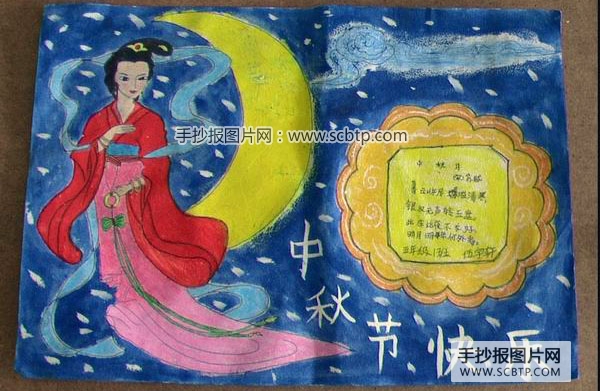 手抄报图片网：www.scbtp.com
中秋月
暮云收尽溢清寒
银汉无声转玉盘
此生此夜不长好
明月明年何处看
三年级1班
中秋节快乐
手抄报图片网
WWW.SCBTP.COM